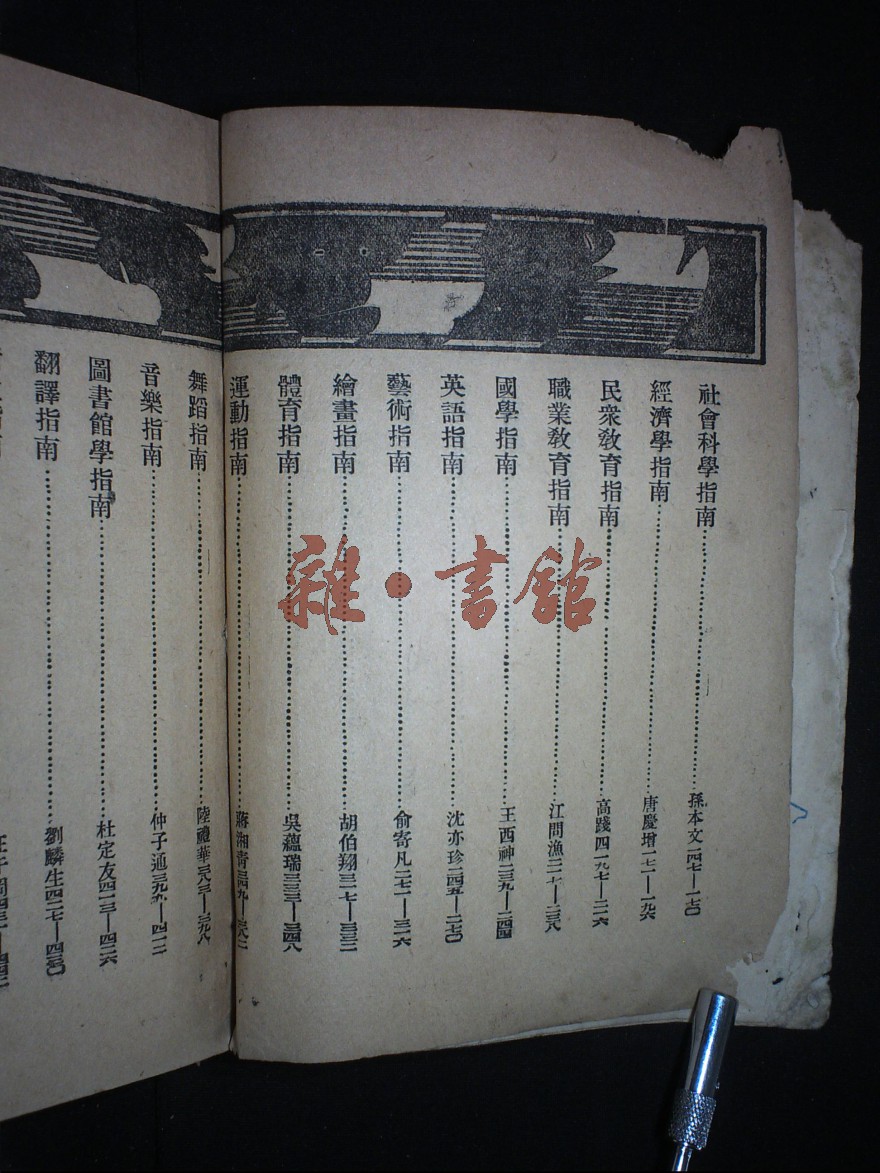 社會科學指南……孫本文 一四七—一七〇
經濟學指南……唐慶增 一七一—一九六
民衆教育指南……高踐四 一九七—二一六
職業教育指南……江問漁 二一七—二三八
國學指南……王西神 二三九—二四四
英語指南……沈亦珍 二四五—二七〇
藝術指南……俞寄凡 二七一—三一六
繪畫指南……胡伯翔 三一七—三三二
體育指南……吳蘊瑞 三三三—三四八
運動指南……蔣湘青 三四九—三八二
舞蹈指南……陸禮華 三八三—三九八
音樂指南……仲子通 三九九—四一二
圖書館學指南……杜定友 四一三—四二六
翻譯指南……劉麟生 四二七—四三〇
雜·書館